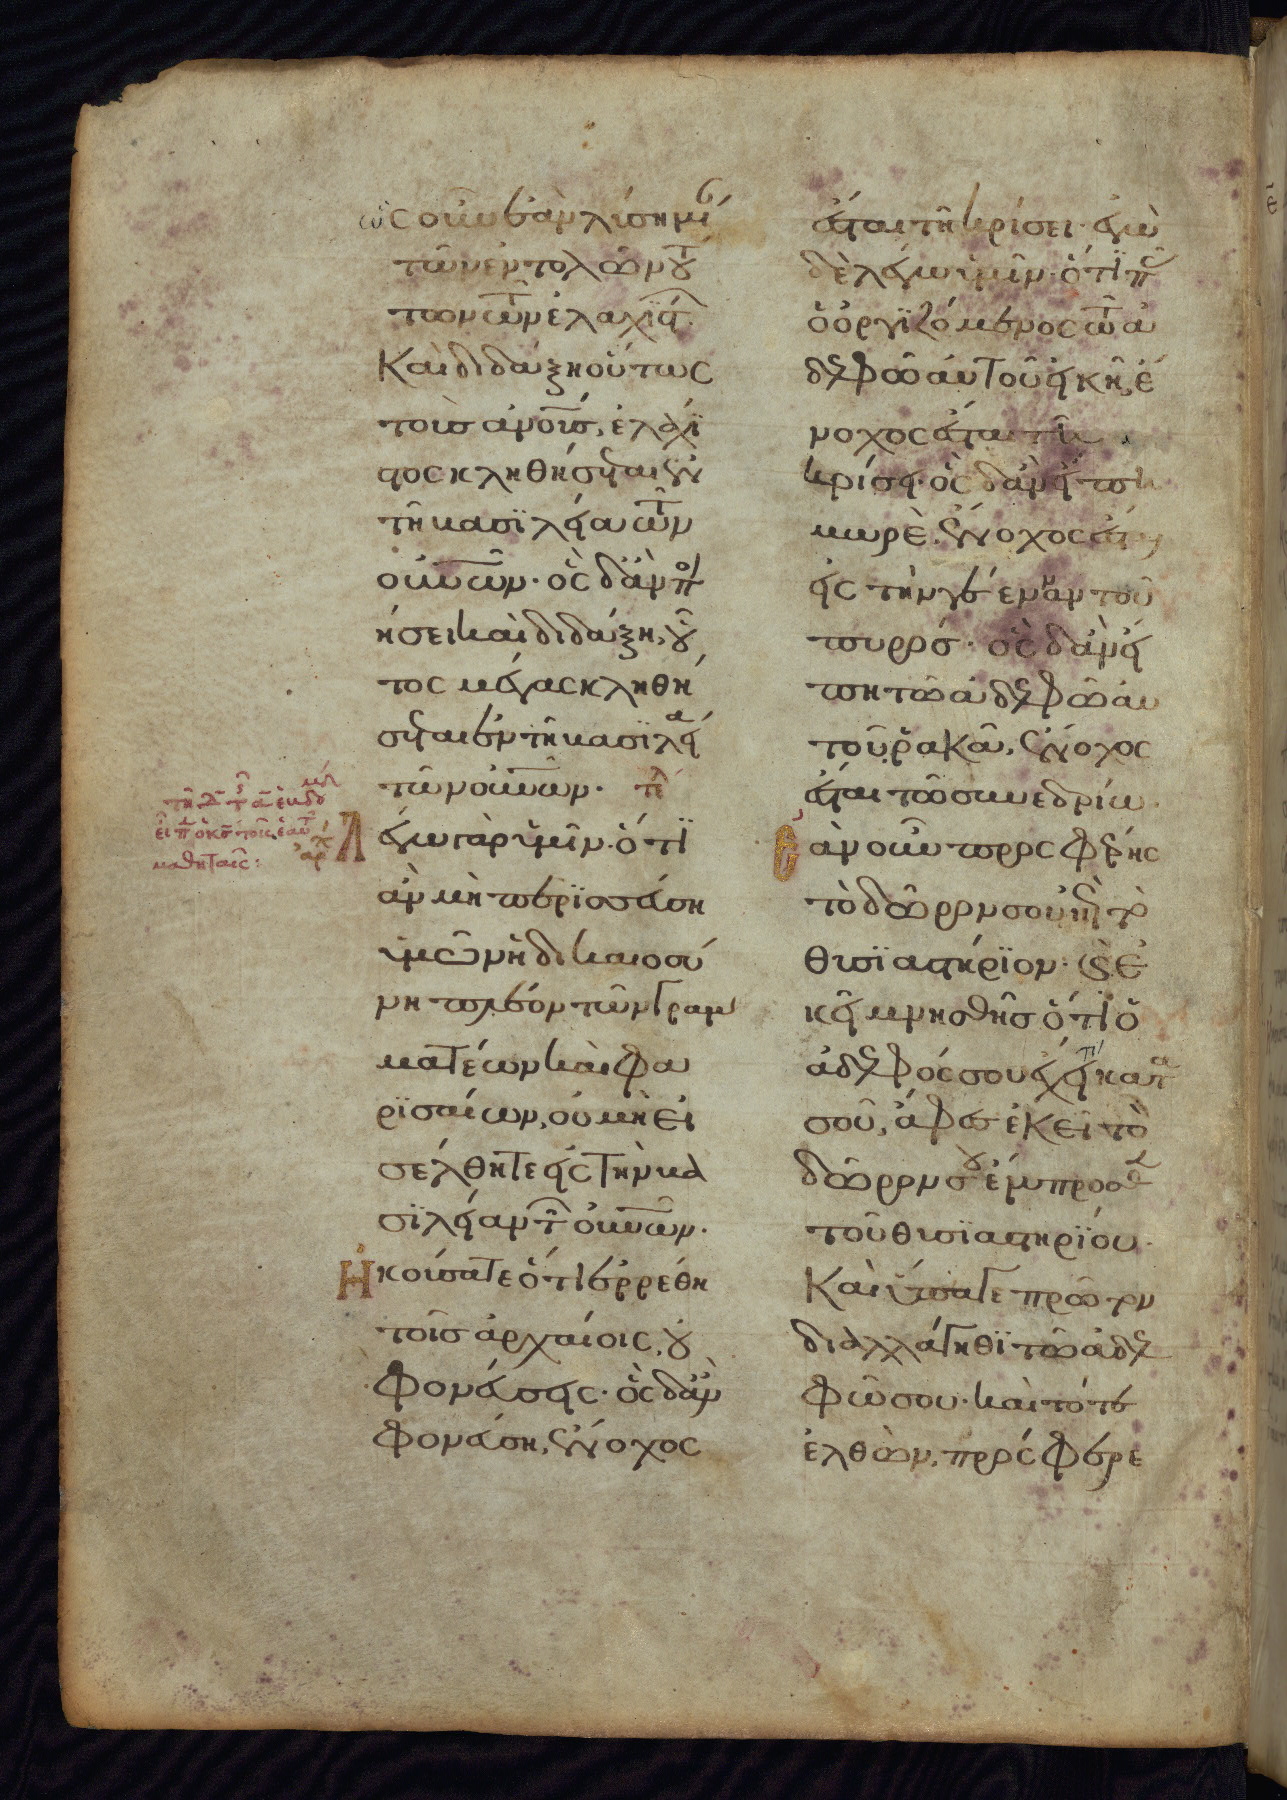 ὼς οὖν ἐὰν λύσῃ μί
τῶν ἐντολῶν τού
των τῶν ἐλαχίστ
Καὶ διδάξῃ οὕτως
τοὺς ἀνους, ἐλάχϊ
στος κληθήσεται ἐν
τῆ βασϊλεία τῶν
οὐνῶν· ὃς δἂν ποι
ήσει καὶ διδάξη, οὗ
τος μέγας κληθή
σεται ἐν τῆ βασϊλεία
τῶν οὐνῶν· τέλ
Λέγω γὰρ ὑμῖν· ὅτϊ
ἂν μὴ περϊσσεύση
ὑμῶν ἡ δικαιοσύ
νη πλεῖον τῶν γραμ
ματέων καὶ φα
ρϊσαίων, οὐ μὴ εἰ
σέλθητε εἰς τὴν βα
σϊλείαν τῶν οὐνῶν.
Ἠκούσατε ὅτι ἐρρέθη
τοῖς ἀρχαίοις, οὐ
φονεύσεις· ὃς δἂν
φονεύση, ἔνοχος
ἔσται τῆ κρίσει· ἐγὼ
δὲ λέγω ὑμῖν· ὅτϊ πᾶς
ὁ ὀργϊζόμενος τῶ ἀ
δελφῶ αὐτοῦ εἰκῆ, ἔ
νοχος ἔσται τῆ
κρίσει· ὃς δἂν εἴπη
μωρὲ. ἔνοχος ἔσται
εἰς τὴν γέενναν τοῦ
πυρρός· ὃς δἂν εἴ
πη τῶ ἀδελφῶ αὐ
τοῦ ῥακᾶ, ἔνοχος
ἔσται τῶ συνεδρίω.
ἐὰν οὖν προσφέρης
τὸ δῶρον σου ἐπὶ τὸ
θυσϊαστήρϊον· καὶ ἐ
κεῖ μνησθῆς ὅτϊ ὁ
ἀδελφός σου ἔχει τι κατὰ
σοῦ, ἄφες ἐκεῖ τὸ
δῶρον σου ἔμπροσθεν
τοῦ θυσϊαστηρϊου.
Καὶ ὕπαγε πρῶτον
διαλλάγηθϊ τῶ ἀδελ
φῶ σου· καὶ τότε
ἐλθὼν, πρόσφερε